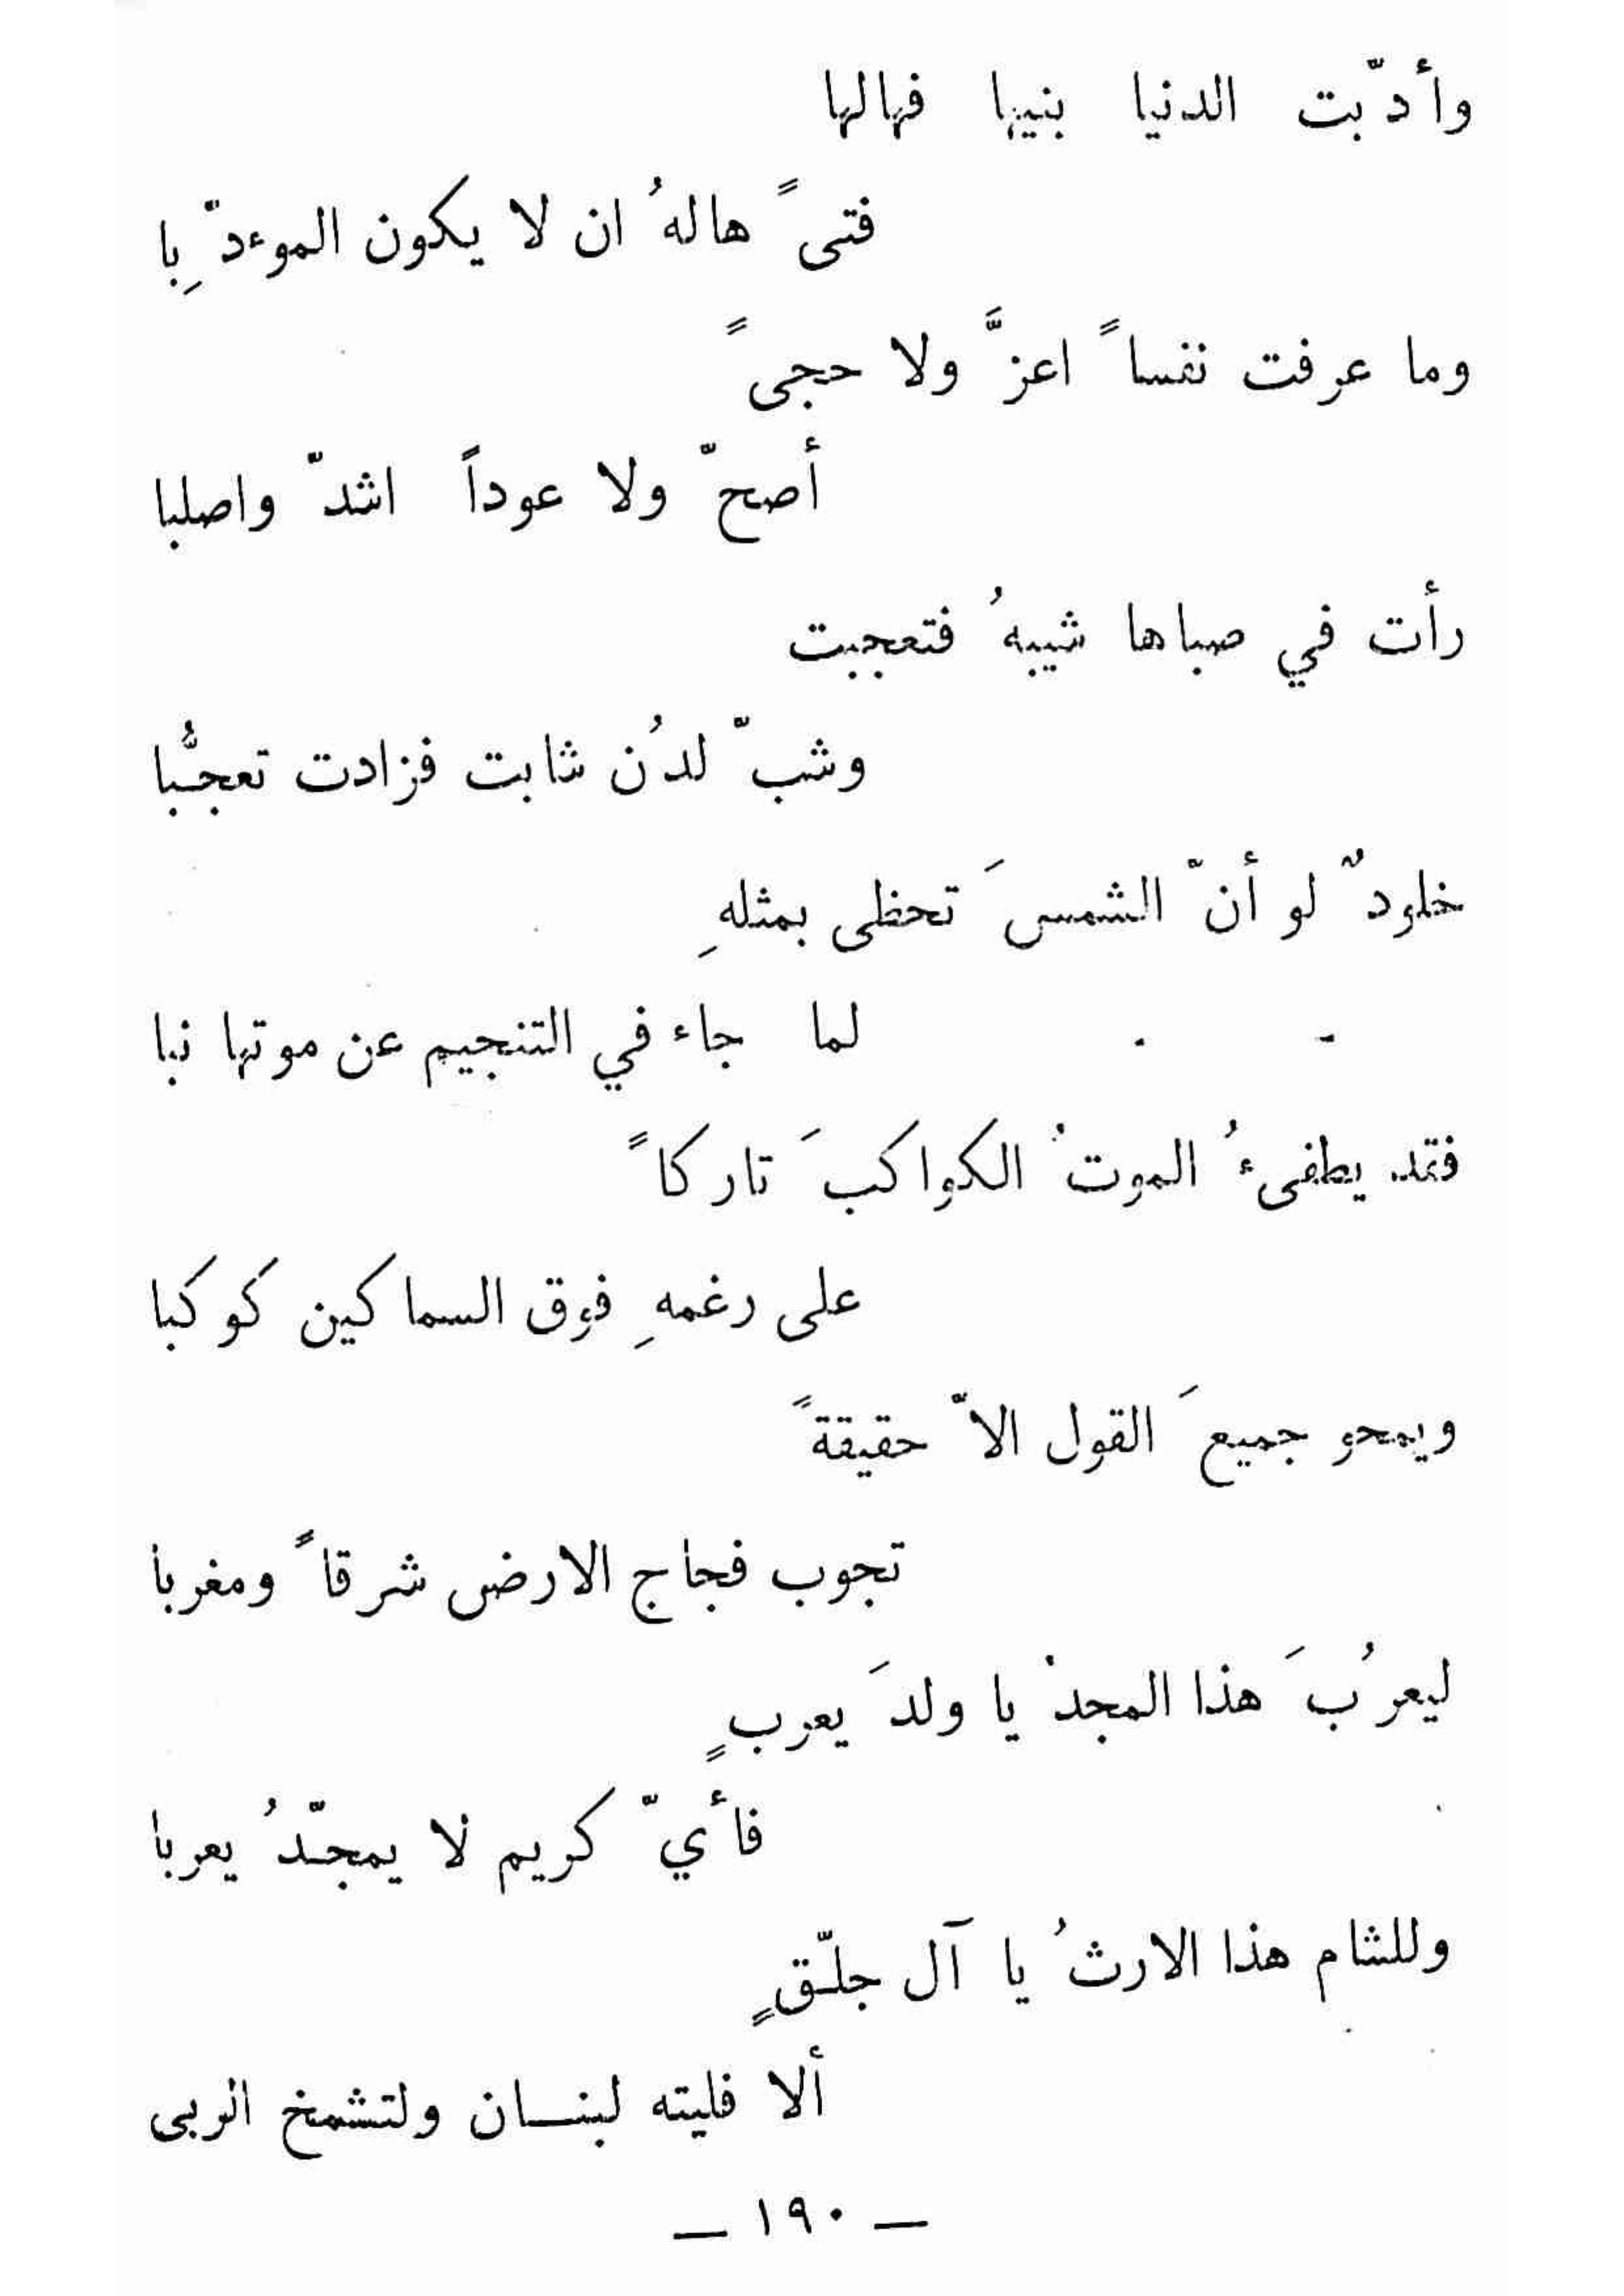 وأدّبت الدنيا بنيها فهالها
فتىً هالهُ ان لا يكون الموءدّبِا
وما عرفت نفساً اعزَّ ولا حجىً
أصحّ ولا عوداً اشدّ واصلبا
رأت في صباها شيبهُ فتعجبت
وشبّ لدُن شابت فزادت تعجُّبا
خلودٌ لو أنّ الشمسَ تحظى بمثلهِ
لما جاء في التنجيم عن موتها نبا
فقد يطفىءُ الموتُ الكواكبَ تاركاً
على رغمهِ فوق السماكين كوكبا
ويمحو جميعَ القول الاّ حقيقةً
تجوب فجاج الارض شرقاً ومغربا
ليعرُبَ هذا المجدُ يا ولدَ يعربٍ
فأيّ كريم لا يمجّدُ يعربا
وللشام هذا الارثُ يا آل جلّقٍ
ألا فليته لبنـان ولتشمخ الربى
— ١٩٠ —